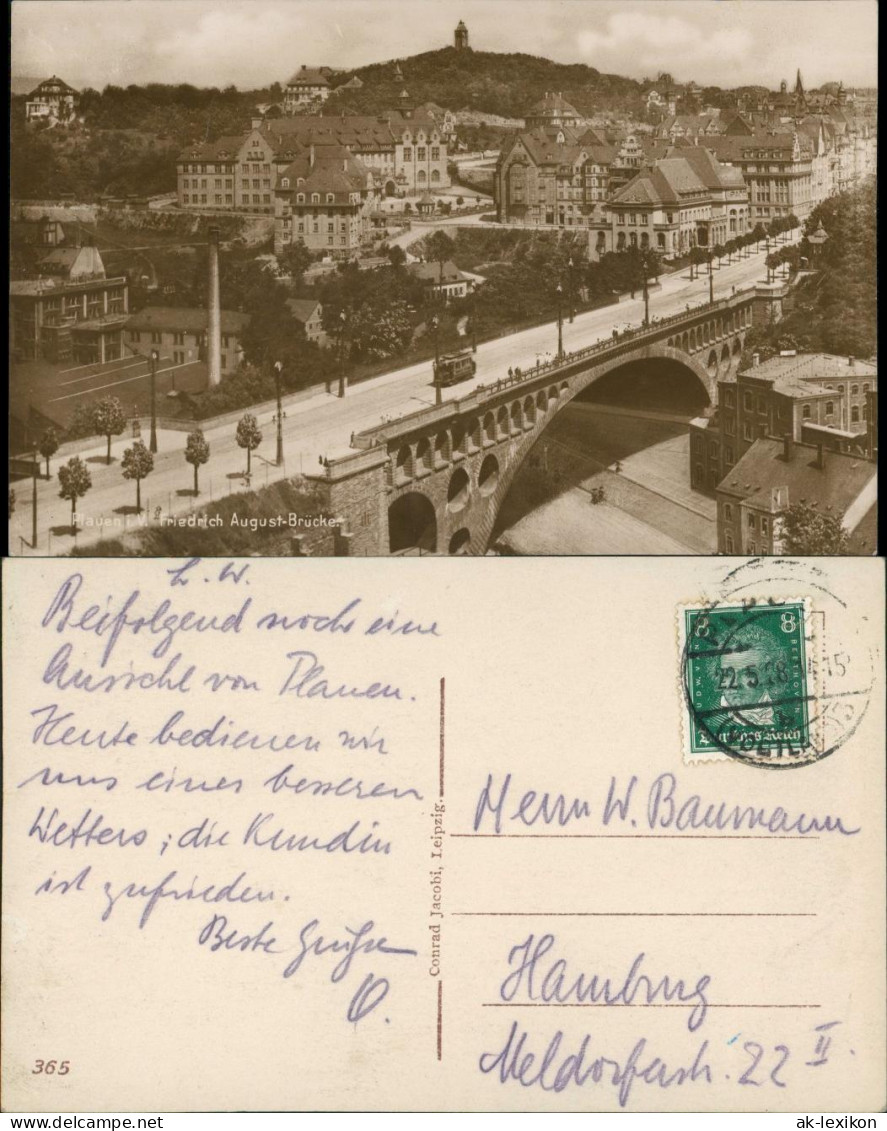 Plauen i. V. Friedrich August-Brücke.
L. W.
Beifolgend noch eine
Ansicht von Plauen.
Heute bedienen wir
uns eines besseren
Wetters; die Kundin
ist zufrieden.
Beste Grüße
O.
365
Conrad Jacobi, Leipzig.
8 8
BEETHOVEN
Deutsches Reich
22.5.28. 14-15
Herrn W. Baumann
Hamburg
Meldorferstr. 22 II.
ak-lexikon